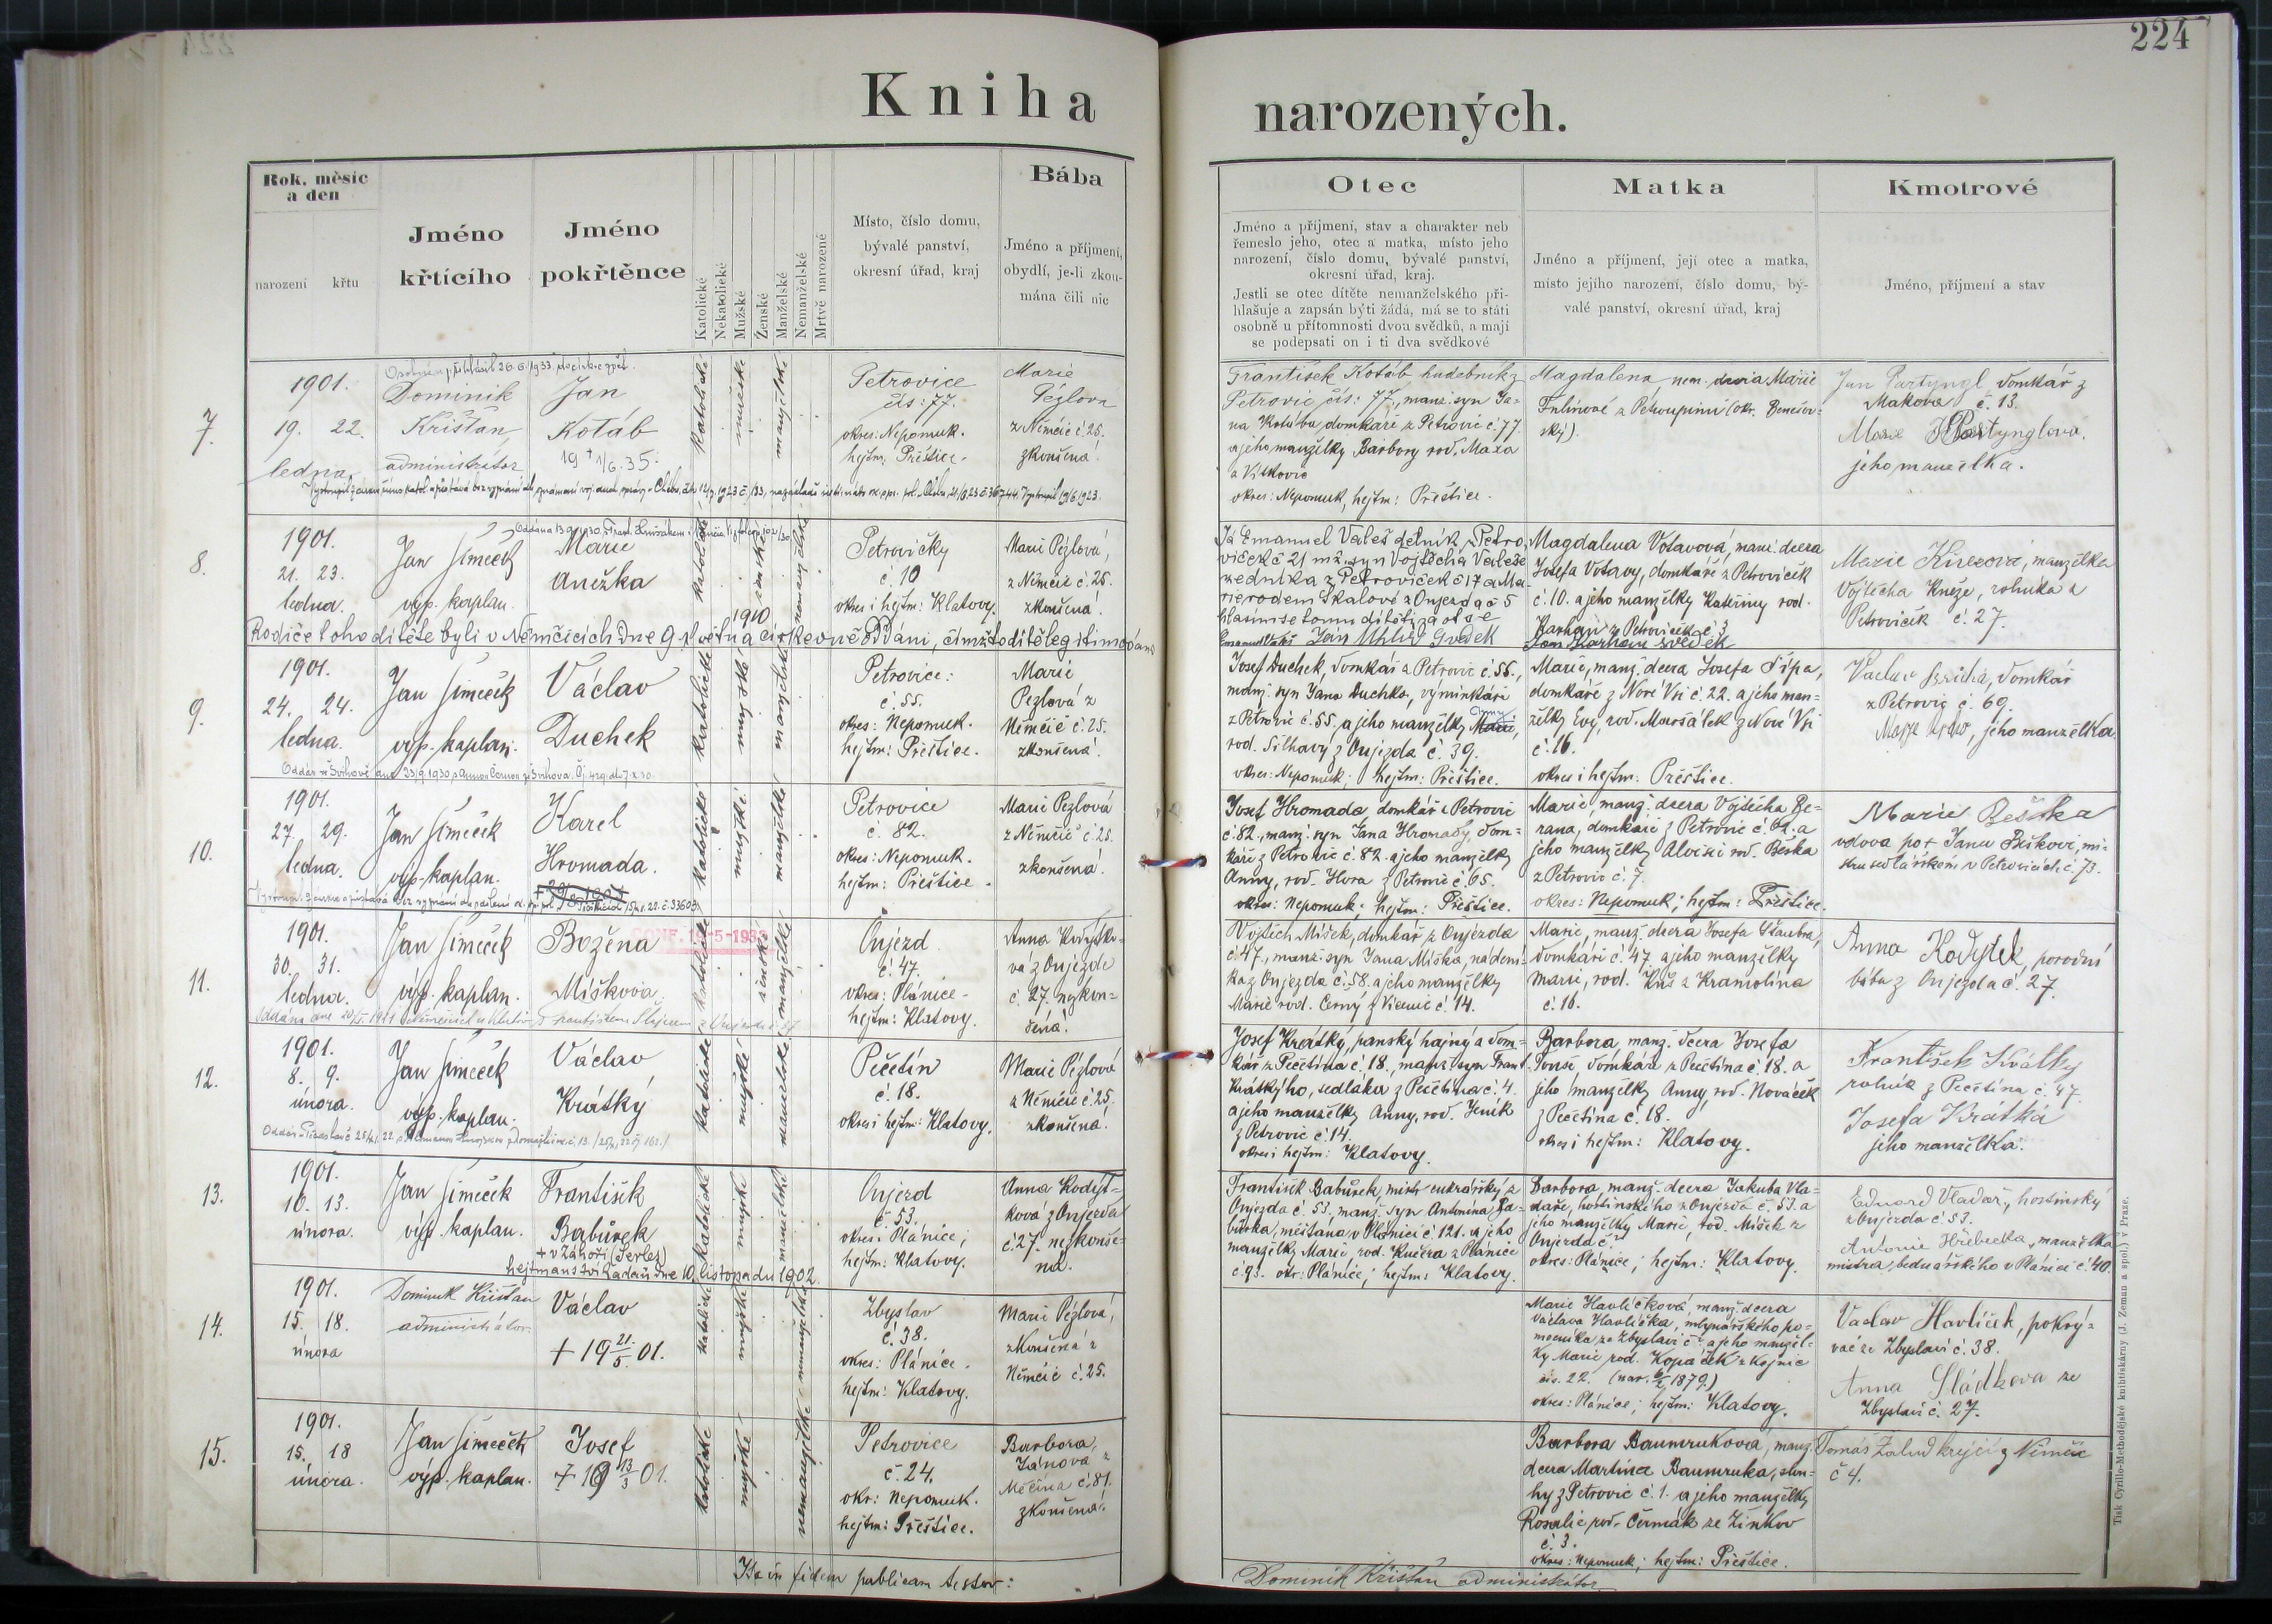 224
Kniha narozených.
Rok, měsíc
a den
narození
křtu
Jméno
křtícího
Jméno
pokřtěnce
Katolické
Nekatolické
Mužské
Ženské
Manželské
Nemanželské
Mrtvě narozené
Místo, číslo domu,
bývalé panství,
okresní úřad, kraj
Bába
Jméno a příjmení,
obydlí, je-li zkou-
mána čili nic
Otec
Jméno a příjmení, stav a charakter neb
řemeslo jeho, otec a matka, místo jeho
narození, číslo domu, bývalé panství,
okresní úřad, kraj.
Jestli se otec dítěte nemanželského při-
hlašuje a zapsán býti žádá, má se to státi
osobně u přítomnosti dvou svědků, a mají
se podepsati on i ti dva svědkové
Matka
Jméno a příjmení, její otec a matka,
místo jejího narození, číslo domu, bý-
valé panství, okresní úřad, kraj
Kmotrové
Jméno, příjmení a stav
7.
1901.
19. 22.
ledna.
Dominik
Křišťan,
administrátor
Jan
Kotáb
19 † 1/6.35.
katolické
mužské
manželské
Petrovice
čís: 77.
okres: Nepomuk.
hejtm: Přeštice.
Marie
Pézlova
z Němčic č. 25.
zkoušená.
František Kotáb hudebník z
Petrovic čís: 77, manž. syn Ja-
na Kotába, domkáře z Petrovic č. 77
a jeho manželky Barbory rod.
okres: Nepomuk, hejtm: Přeštice.
Magdalena nem. dcera Marie
Jan Partyngl domkář z
Makova č. 13.
Marie Partynglová.
jeho manželka.
8.
1901.
21. 23.
ledna.
Jan Šimeček
výp. kaplan.
Marie
Anežka
katolické
ženské
nemanželské
Petrovičky
č. 10
okres i hejtm: Klatovy.
Marie Pézlová,
z Němčic č. 25.
zkoušená.
1910
Rodiče toho dítěte byli v Němčicích dne 9. května církevně oddáni, čímž to dítě legitimováno
Já Emanuel Valeš dělník z Petro
viček č 21 mž. syn Vojtěcha Valeše
zedníka z Petroviček č 17 a Ma-
rie rodem Skalové z Onjezda č 5
hlásím se tomu dítěti za otce
Magdalena Votavová, manž. dcera
Josefa Votavy, domkáře z Petroviček
č. 10. a jeho manželky Kateřiny rod.
Karhan z Petroviček č. 3
Jan Karhan svědek
Marie Knězová, manželka
Vojtěcha Kněze, rolníka z
Petroviček č. 27.
9.
1901.
24. 24.
ledna.
Jan Šimeček
výp. kaplan.
Václav
Duchek
katolické
mužské
manželské
Petrovice:
č. 55.
okres: Nepomuk.
hejtm: Přeštice.
Marie
Pézlová z
Němčic č. 25.
zkoušená.
Josef Duchek, domkář z Petrovic č. 55.,
manž. syn Jana Duchka, výminkáře
z Petrovic č. 55, a jeho manželky Anny
rod. Silhavy z Onjezda č. 39.
okres: Nepomuk; hejtm: Přeštice.
Marie, manž. dcera Josefa Šípa,
domkáře z Nové Vsi č. 22. a jeho man-
želky Evy, rod. Maršálek z Nové Vsi
č. 16.
okres i hejtm: Přeštice.
domkář
z Petrovic č. 69.
jeho manželka.
10.
1901.
27. 29.
ledna.
Jan Šimeček
výp. kaplan.
Karel
Hromada.
katolické
mužské
manželské
Petrovice
č. 82.
okres: Nepomuk.
hejtm: Přeštice.
Marie Pézlová
z Němčic č. 25.
zkoušená.
Josef Hromada, domkář z Petrovic
č. 82., manž. syn Jana Hromady, dom-
káře z Petrovic č. 82. a jeho manželky
Anny, rod. Hora z Petrovic č. 65.
okres: Nepomuk; hejtm: Přeštice.
Marie, manž. dcera Vojtěcha Be-
rana, domkáře z Petrovic č. 62. a
jeho manželky Aloisie rod. Beška
z Petrovic č. 7.
okres: Nepomuk; hejtm: Přeštice.
Marie Beška
vdova po † Janu Beškovi, mi-
stru sedlářském v Petrovicích č. 73.
11.
1901.
30. 31.
ledna.
Jan Šimeček
výp. kaplan.
Božena
Míšková
katolické
ženské
manželské
Onjezd
č. 47.
okres: Plánice.
hejtm: Klatovy.
Anna Kodytko-
vá z Onjezda
č. 27. nezkou-
šená.
Vojtěch Míšek, domkář z Onjezda
č. 47., manž. syn Jana Míška, nádení-
ka z Onjezda č. 58. a jeho manželky
Marie rod. Černý z č. 14.
Marie, manž. dcera Josefa
domkáře č. 47. a jeho manželky
Marie, rod. Kůs z Kramolína
č. 16.
Anna Kodytek, porodní
bába z Onjezda č. 27.
12.
1901.
8. 9.
února.
Jan Šimeček
výp. kaplan.
Václav
Krátký
katolické
mužské
manželské
Pečetín
č. 18.
okres i hejtm: Klatovy.
Marie Pézlová
z Němčic č. 25.
zkoušená.
Josef Krátký, panský hajný a dom-
kář z Pečetína č. 18., manž. syn Frant.
Krátkýho, sedláka z Pečetína č. 4.
a jeho manželky Anny, rod. Jeník
z Petrovic č. 14.
okres i hejtm: Klatovy.
Barbora, manž. dcera Josefa
domkáře z Pečetína č. 18. a
jeho manželky Anny, rod. Nováček
z Pečetína č. 18.
okres i hejtm: Klatovy.
František Krátky
rolník z Pečetína č. 47.
Josefa Krátká
jeho manželka.
13.
1901.
10. 13.
února.
Jan Šimeček
výp. kaplan.
František
Babůrek
† v Záhoří (Serles)
hejtmanství Kadaň dne 10. listopadu 1902.
katolické
mužské
manželské
Onjezd
č. 53.
okres: Plánice;
hejtm: Klatovy.
Anna Kodyt-
ková z Onjezda
č. 27. nezkouše-
ná.
František Babůrek, mistr cukrářský z
Onjezda č. 53. manž. syn Antonína Ba-
bůrka, měšťana v Plánici č. 121. a jeho
manželky Marie, rod. Kučera z Plánice
č. 93. okr: Plánice; hejtm: Klatovy.
Barbora, manž. dcera Jakuba Vla-
daře, hostinského z Onjezda č. 53. a
jeho manželky Marie, rod. Míšek z
Onjezda č.
okres: Plánice; hejtm: Klatovy.
Eduard Vladař, hostinský
z Onjezda č. 53.
Antonie manželka
mistra bednářského v Plánici č. 40.
14.
1901.
15. 18.
února
Dominik Křišťan
administrátor.
Václav
† 19 21./5. 01.
katolické
mužské
nemanželské
Zbyslav
č. 38.
okres: Plánice.
hejtm: Klatovy.
Marie Pézlová,
zkoušená z
Němčic č. 25.
Marie Havlíčková, manž. dcera
Václava Havlíčka, mlynářského po-
mocníka ze Zbyslavi č. a jeho manžel-
ky Marie rod. Kopáček z Kojnic
čís. 22.
okres: Plánice; hejtm: Klatovy.
Vaclav Havlíček, pokrý-
vač ze Zbyslavi č. 38.
Anna Sládkova ze
Zbyslavi č. 27.
15.
1901.
15. 18
února.
Jan Šimeček
výp. kaplan.
Josef
† 19 13/3 01.
katolické
mužské
nemanželské
Petrovice
č. 24.
okr: Nepomuk.
hejtm: Přeštice.
Barbora,
Zánova z
Měčína č. 81.
zkoušená.
Barbora Baumrukova, manž.
dcera Martina Baumruka, slou-
hy z Petrovic č. 1. a jeho manželky
Rosalie rod. Čermák ze Žinkov
č. 3.
okres: Nepomuk; hejtm: Přeštice.
Tomáš Žalud krejčí z Němčic
č 4.
Ita in fidem publicam testor:
Dominik Křišťan administrátor
Tisk Cyrillo-Methodějské knihtiskárny (J. Zeman a spol.) v Praze.